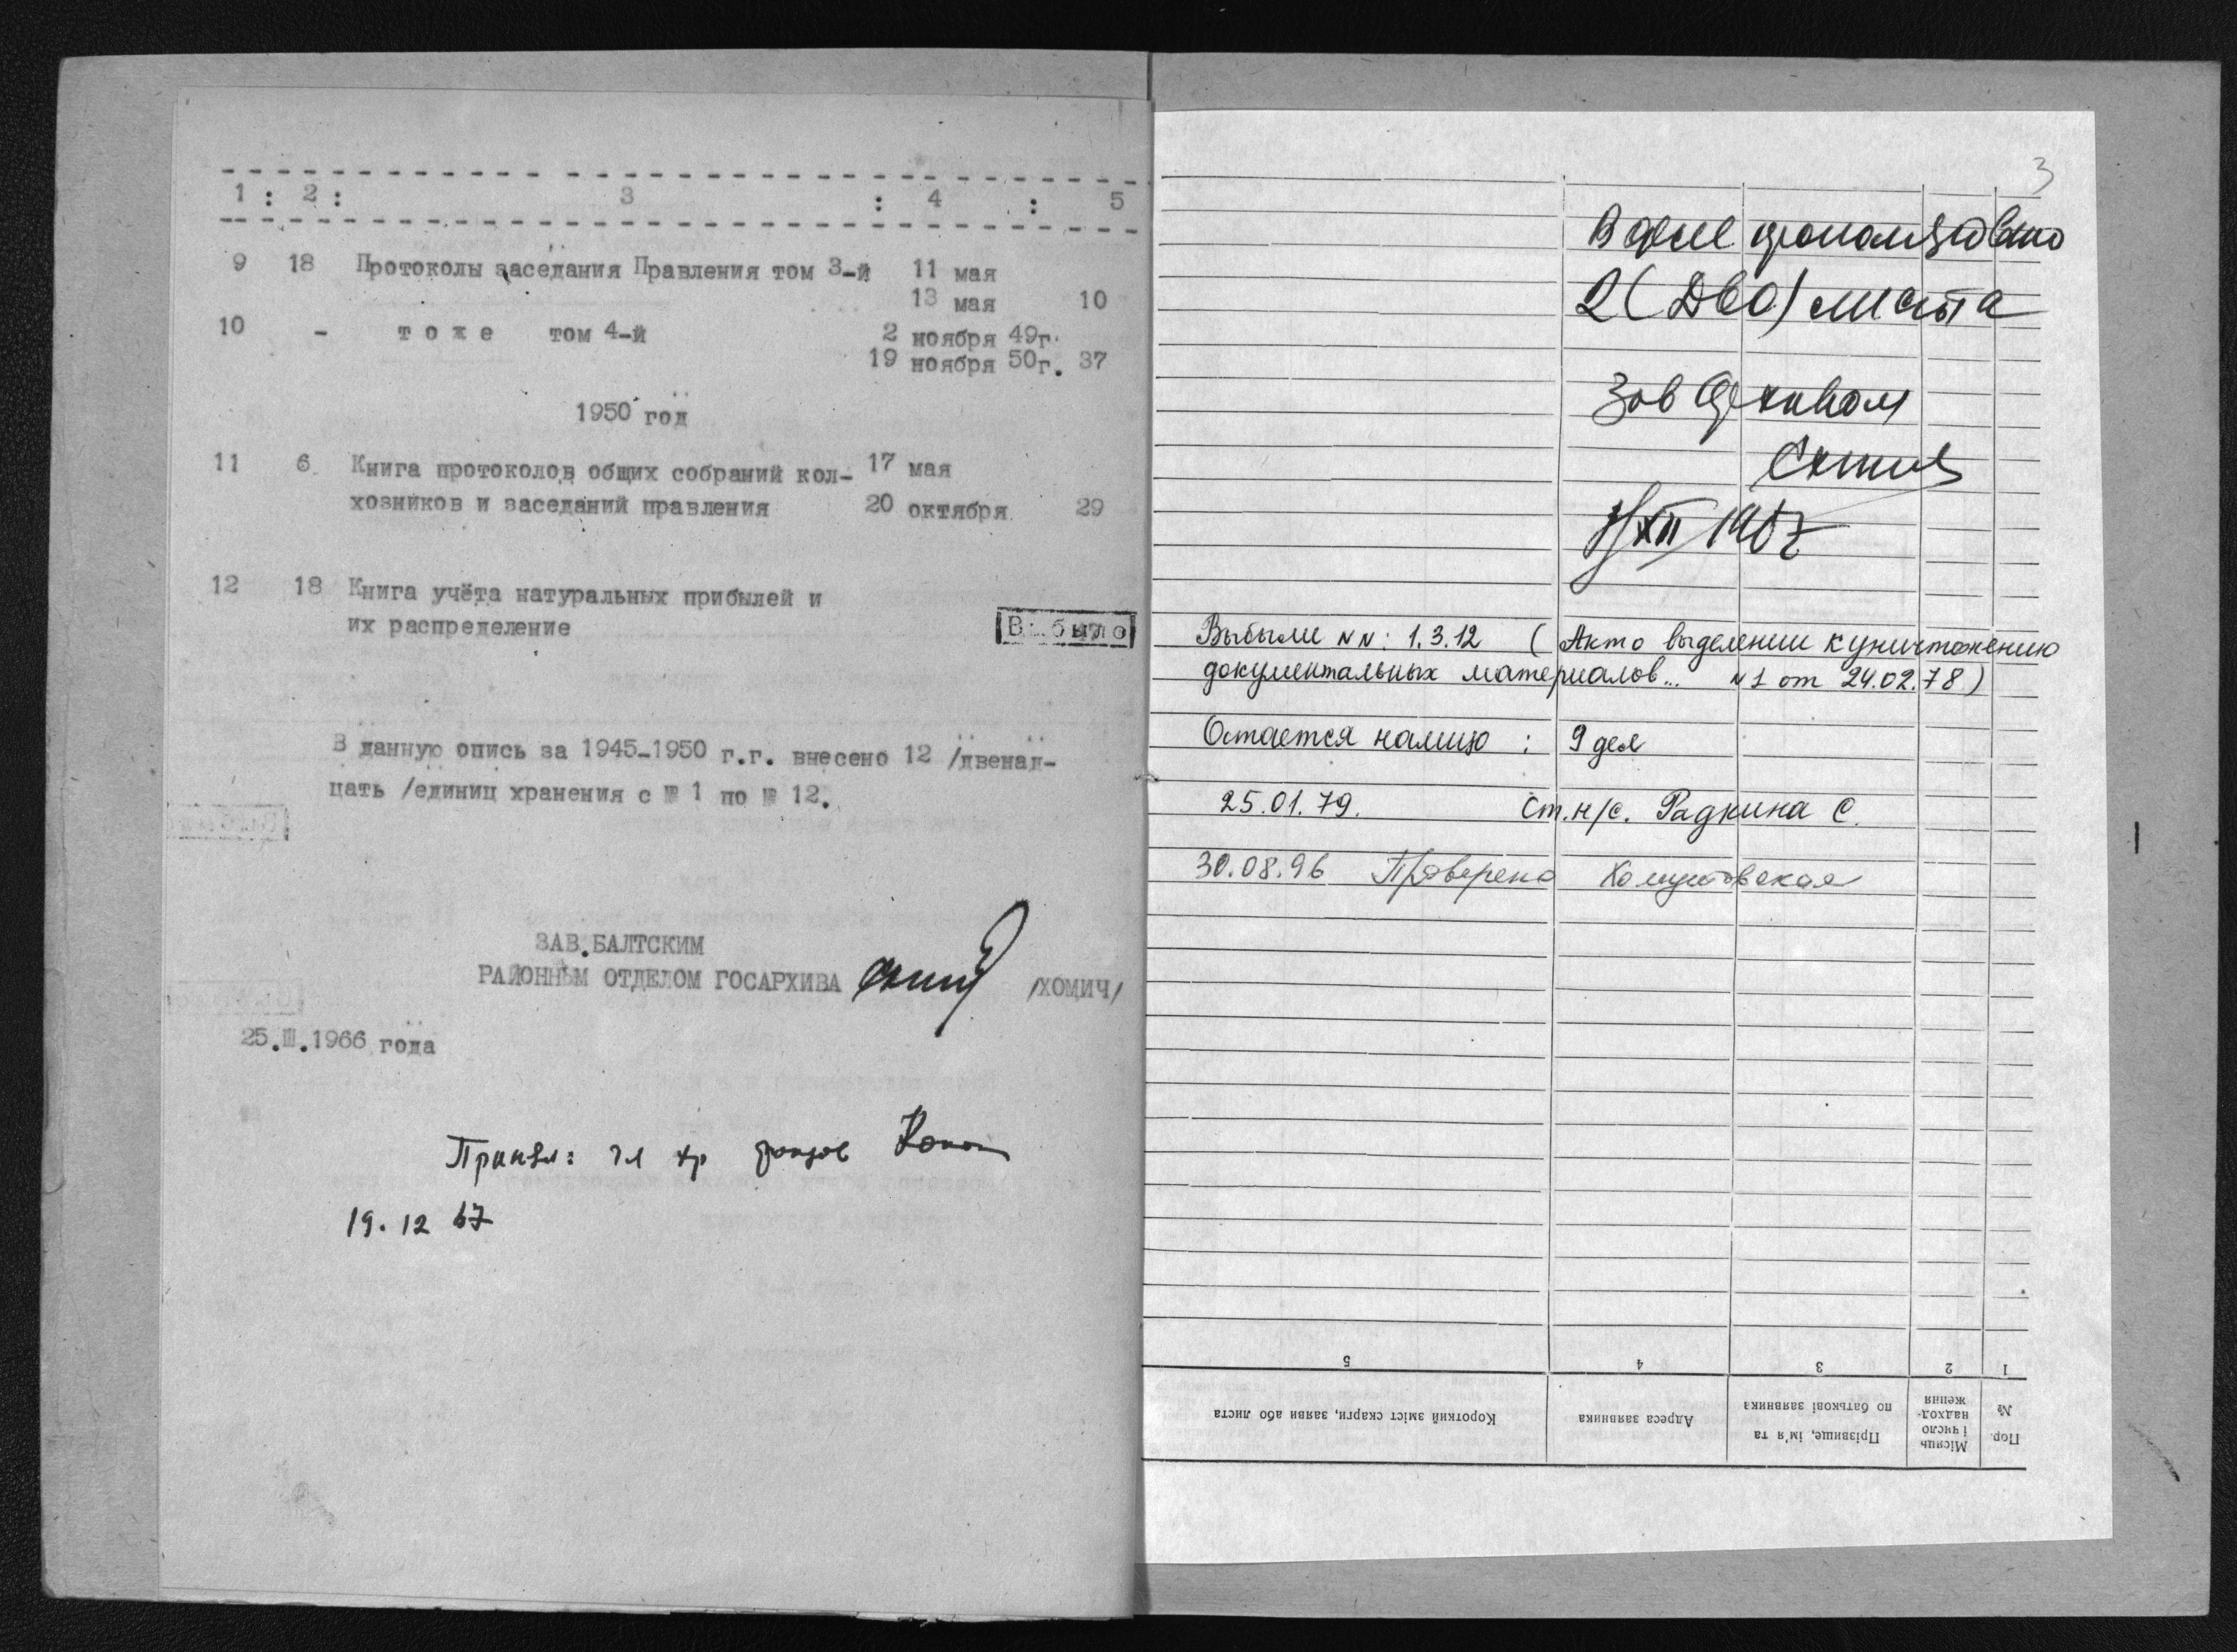 1 : 2 : 3 : 4 : 5
9 18 Протоколы заседания Правления том 3-й 11 мая
13 мая 10
10 - тоже том 4-й 2 ноября 49г.
19 ноября 50г. 37
1950 год
11 6 Книга протоколов общих собраний кол- 17 мая
хозников и заседаний правления 20 октября 29
12 18 Книга учёта натуральных прибылей и
их распределение Выбыло
В данную опись за 1945-1950 г.г. внесено 12 /двенад-
цать /единиц хранения с № 1 по № 12.
ЗАВ.БАЛТСКИМ
РАЙОННЫМ ОТДЕЛОМ ГОСАРХИВА /ХОМИЧ/
25.III.1966 года
Принял: гл хр фондов
19.12 67
3
В деле
2 (два) листа
Зав
XII 1967
Выбыли NN: 1.3.12 ( Акт о выделении к уничтожению
документальных материалов... N1 от 24.02.78)
Остается налицо : 9 дел
25.01.79. Ст.н/с. Радкина С.
30.08.96 Проверено
5 4 3 2 1
Короткий зміст скарги, заяви або листа
Адреса заявника
Прізвище, ім'я та
по батькові заявника
Місяць
і число
надход-
ження
Пор.
№